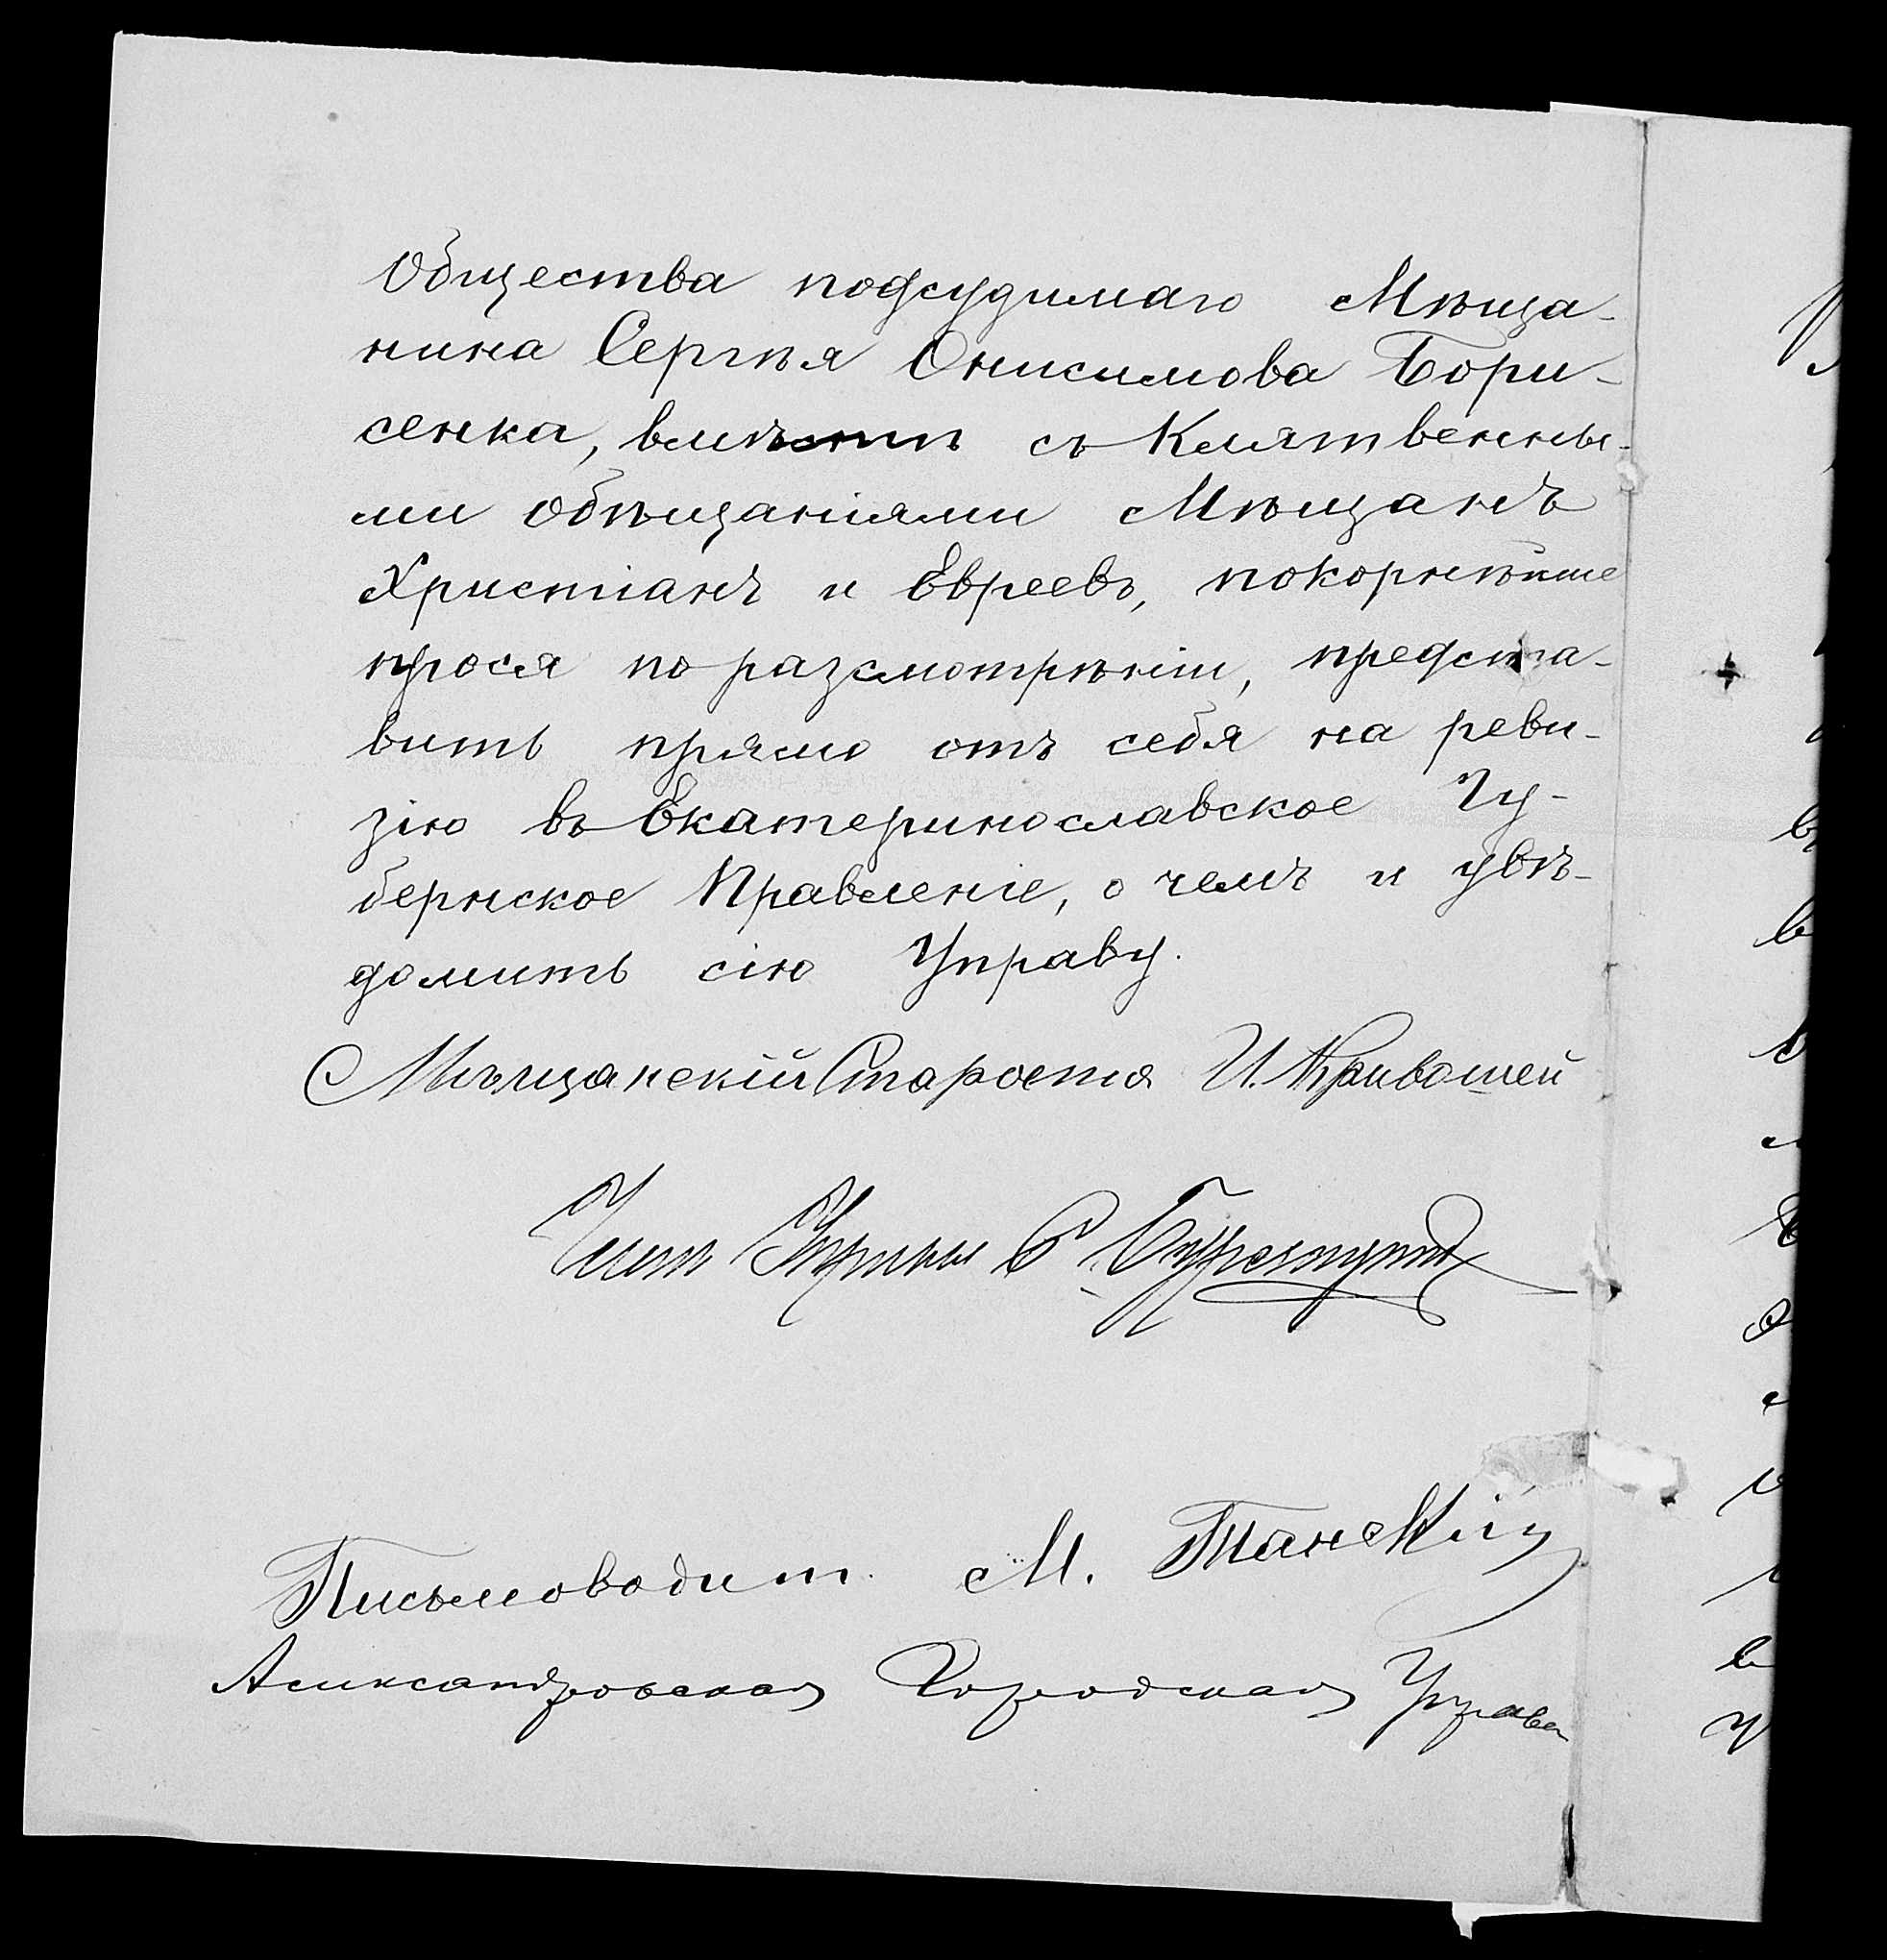 Общества подсудимаго Мѣща-
нина Сергѣя Онисимова Бори-
сенка, вмѣстѣ съ Клятвенны-
ми обѣщаніями Мѣщанъ
Христіанъ и Евреевъ, покорнѣйше
прося по разсмотрѣніи, предста-
вить прямо отъ себя на реви-
зію въ Екатеринославское Гу-
бернское Правленіе, о чемъ и увѣ-
домить сію Управу.
Мѣщанскій Староста И. Кривошей
Член Управы
Письмоводит. М. Танскій
Александровская Городская Управа